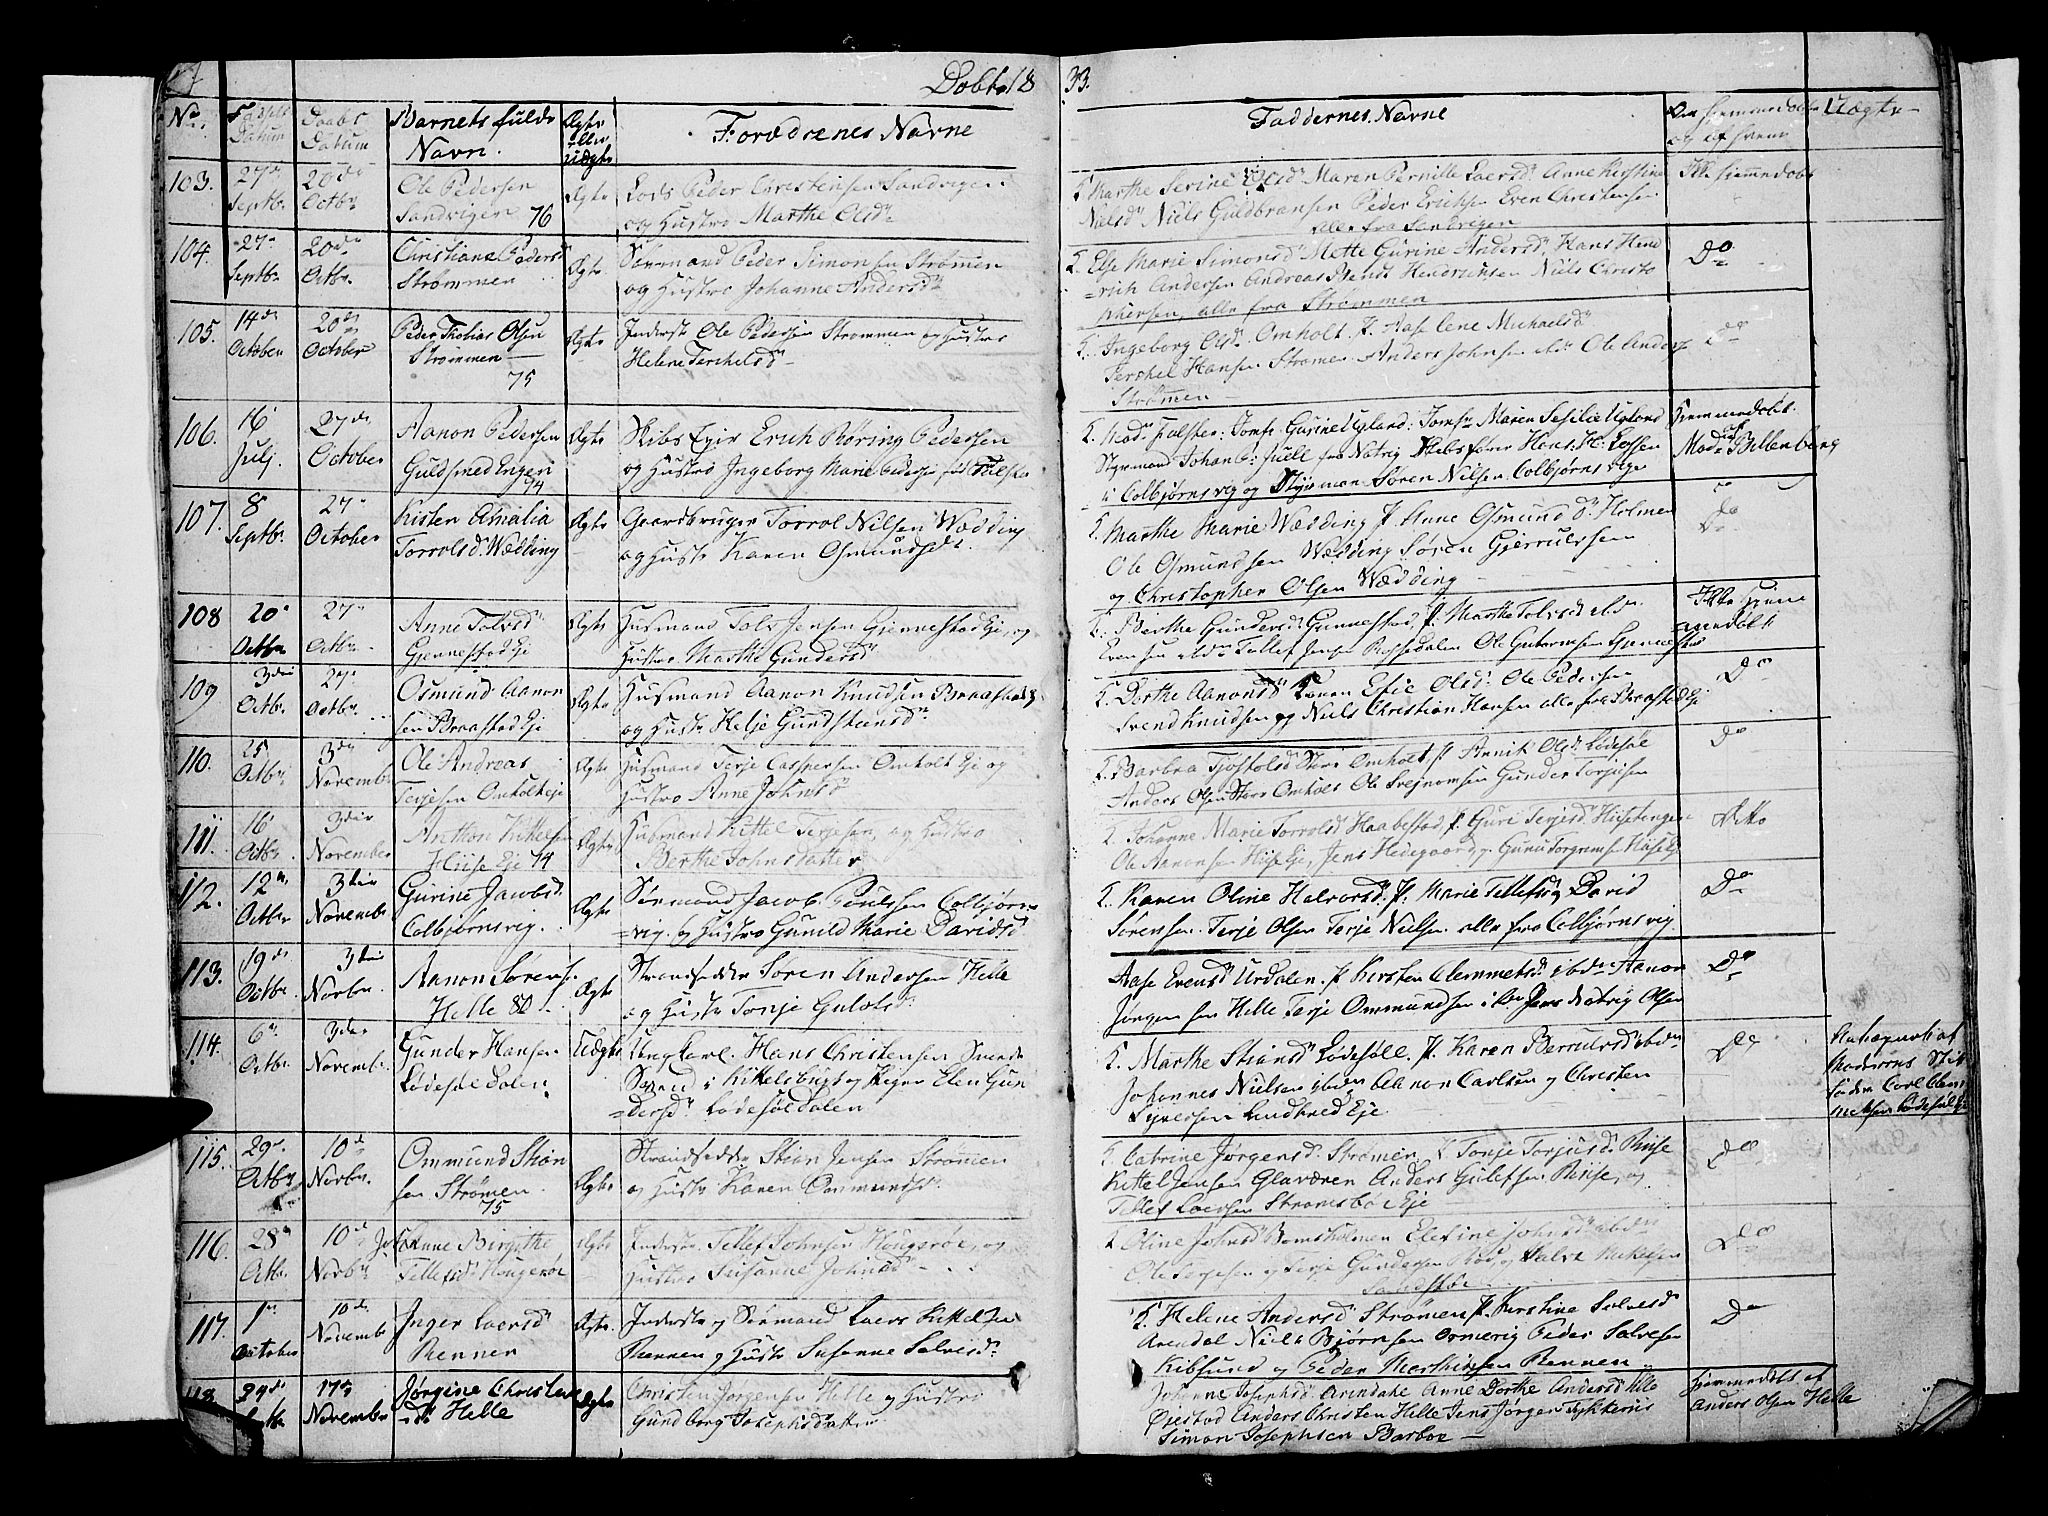 Døbte 18 33.
No.
Fødsels Datum
Daabs Datum
Barnets fulde Navn.
Ægte eller uægte
Forældrenes Navne
Faddernes Navne
Uægte
103.
27de Septbr.
20de Octbr.
Ole Pedersen
Sandvigen 76
Ægte
Lods Peder Christensen Sandvigen
og Hustro Marthe Olsd
Marthe Serine Olsd Maren Pernille Laersd Anne Kirstine
Nielsd Niels Guldbransen Peder Erichsen Even Christensen
alle fra Sandvigen
Ikke Hjemmedøbt
104.
27 Septbr
20de Octbr.
Christiane Pedersd
Strømmen
Ægte
Sørmand Peder Simonsen Strømen
og Hustro Johanne Andersd
Else Marie Simonsd Mette Gurine Andersd, Hans Hend
=rich Andersen Andreas Bendt Hendrichsen Niels Christo
phersen, alle fra Strømmen
Do
105.
14de October
20de October
Peder Tobias Olsen
Strømmen
75
Ægte
Inderste Ole Pedersen Strømmen og Hustro
Helene Terchelsd
Ingeborg Olsd. Omholt. P. Aase Lene Michaelsd
Terchel Hansen Strømen Anders Johnsen Ole Anders
Strømen
Do
106.
16 Julj.
27de October
Aanon Pedersen
Guldsmed Engen
74
Ægte
Skibs Eyer Erich Børing Pedersen
og Hustro Ingeborg Marie Pedersen fød Falster
Mad. Falster: Jomf. Gurine Ugland: Jomfr Maren Sesilie Ugland
Styrmand Johan fra Natvig Skibsfører Hans H. Lassen
i Colbjørnsvig og Styrman Søren Nilsen Colbjørnsvig
Hjemmedøbt.
Mad. Billenberg
107.
8 Septbr.
27 October
Kisten Amalia
Torrolsd. Wædding
Ægte
Gaardbruger Torrol Nilsen Wædding
og Hustr Karen Osmundsdt.
Marthe Marie Wædding P. Anne Osmundsd. Holmen
Ole Osmundsen Wædding Søren Gjerrulssen
og Christopher Olsen Wædding
Do
108
20 Octbr
27 Octbr.
Anne Tolvsd
Gjennestad Eje
Ægte
Husmand Tolv Jensen Gjennestad Eje, og
Hustro Marthe Gundersd
Berthe Gundersd. Gennestad, P. Marthe Tolvsd
Evensen Tellef Jensen Rossedalen Ole Guttormsen Gjennestad
Ikke Hjemmedøbt
109
3die Octbr.
27 Octbr.
Osmund Aanon
sen Braastad Eje
Ægte
Husmand Aanon Knudsen Braastad Ej
og Hustr Helje Gundstensd
Dorthe Aanonsd Efie Olsd. Ole Pedersen
Svend Knudsen og Niels Christian Hansen alle fra Braastad Ej
Do
110.
25 Octbr
3die November
Ole Andreas
Terjesen Omholt eje
Ægte
Husmand Terje Caspersen Omholt Eje og
Hustro Anne Johnsd
Barbra Tjostolsd Store Omholt P. Annik Olsd. Lødesøl
Anders Olsen Store Omholt Ole Gregnomsen Gunder Torjusen
Do
111.
16 Octbr.
3die November
Anthon Kittelsen
Hiise Eje 74
Ægte
Husmand Kittel Terjesen, og Hustro
Berthe Johnsdatter
Johanne Marie Torrolsd Haabestad, P. Guri Terjesd. Hiisetangen
Ole Aanonsen Hiise Eje, Jens Hedegaard og Guru Torgrimsen Hiise Eje
Ditto
112.
12te Octbr
3die Novembr
Gurine Jacobsd.
Colbjørnsvig.
Ægte
Sørmand Jacob Poulssen Colbjørns
=vig. og Hustro Gunild Marie Davidsd
Karen Oline Halvorsd. P. Marie Tellefsd, David
Sørensen. Terje Olsen Terje Nielsen alle fra Colbjørnsvig.
Do
113.
19de Octbr.
3die Novbr.
Aanon Sørens.
Helle 80
Ægte
Strandsidder Søren Andersen Helle
og Hustr Tonje Gulovsd
Aase Evensd Urdalen. P. Kirsten Clemmetsd ibdm Aanon
Jørgensen Helle Terje Ommundsen Jens Natvig Olsen
Do
114.
6te Octbr.
3die November
Gunder Hansen
Lødesøl Dalen
Uægte
Ungkarl. Hans Christensen Smede
Svend i Kittelsbugt og Pigen Elen Gun
=dersd. Lødesøldalen
Marthe Stiansd Lødesøll. P. Karen Berrulsd ibdm
Johannes Nielsen ibdm Aanon Carlsen og Christen
Sivertsen Lindtved Eje.
Do
Moderens Stif
fader Carl Clem
metsen Lødesøl
115.
29de Octbr
10de Novbr.
Ommund Stian
sen Strømen.
75
Ægte
Strandsidder Stian Jensen Strømen
og Hustr Karen Ommundsd.
Catrine Jørgensd. Strømen, Tonje Torjusd. Riise
Kittel Jensen Glaværen Anders Gulefsen Riise, og
Tellef Laersen Strømsbo Eje
Do
116.
28de Octbr.
10de Novbr
Johanne Birgithe
Tellefsd. Hougerøe
Ægte
Inderste Tellef Johnsen Hougerøe, og
Hustro Susanne Johnsd
Oline Johnsd Bomsholmen Elefine Johnsd ibdm
Ole Terjesen og Terje Gundersen Rød, og Salve
Do
117.
1 October
10de November
Inger Laersd
Rennen
Ægte
Inderste og Sørmand Laers Kittelsen
Rennen og Hustr Susanne Salvesd.
Helene Andersd Strømen P. Kirstine Salvesd
Arendal Niels Bjørnsen Ormerig Peder Salvesen
Kibsund og Peder Marthinsen Rennen
Do
118.
29de
17de November
Jørgine Christens
Helle
Ægte
Christen Jørgensen Helle og Hustro
Gundborg Josephsdatter
Johanne Josephsd. Arendal Anne Dorthe Andersd
Øiestad Anders Christen Helle Jens Jørgen
Simon Josephsen Barboe
Hjemmedøbt af
Anders Olsen Helle